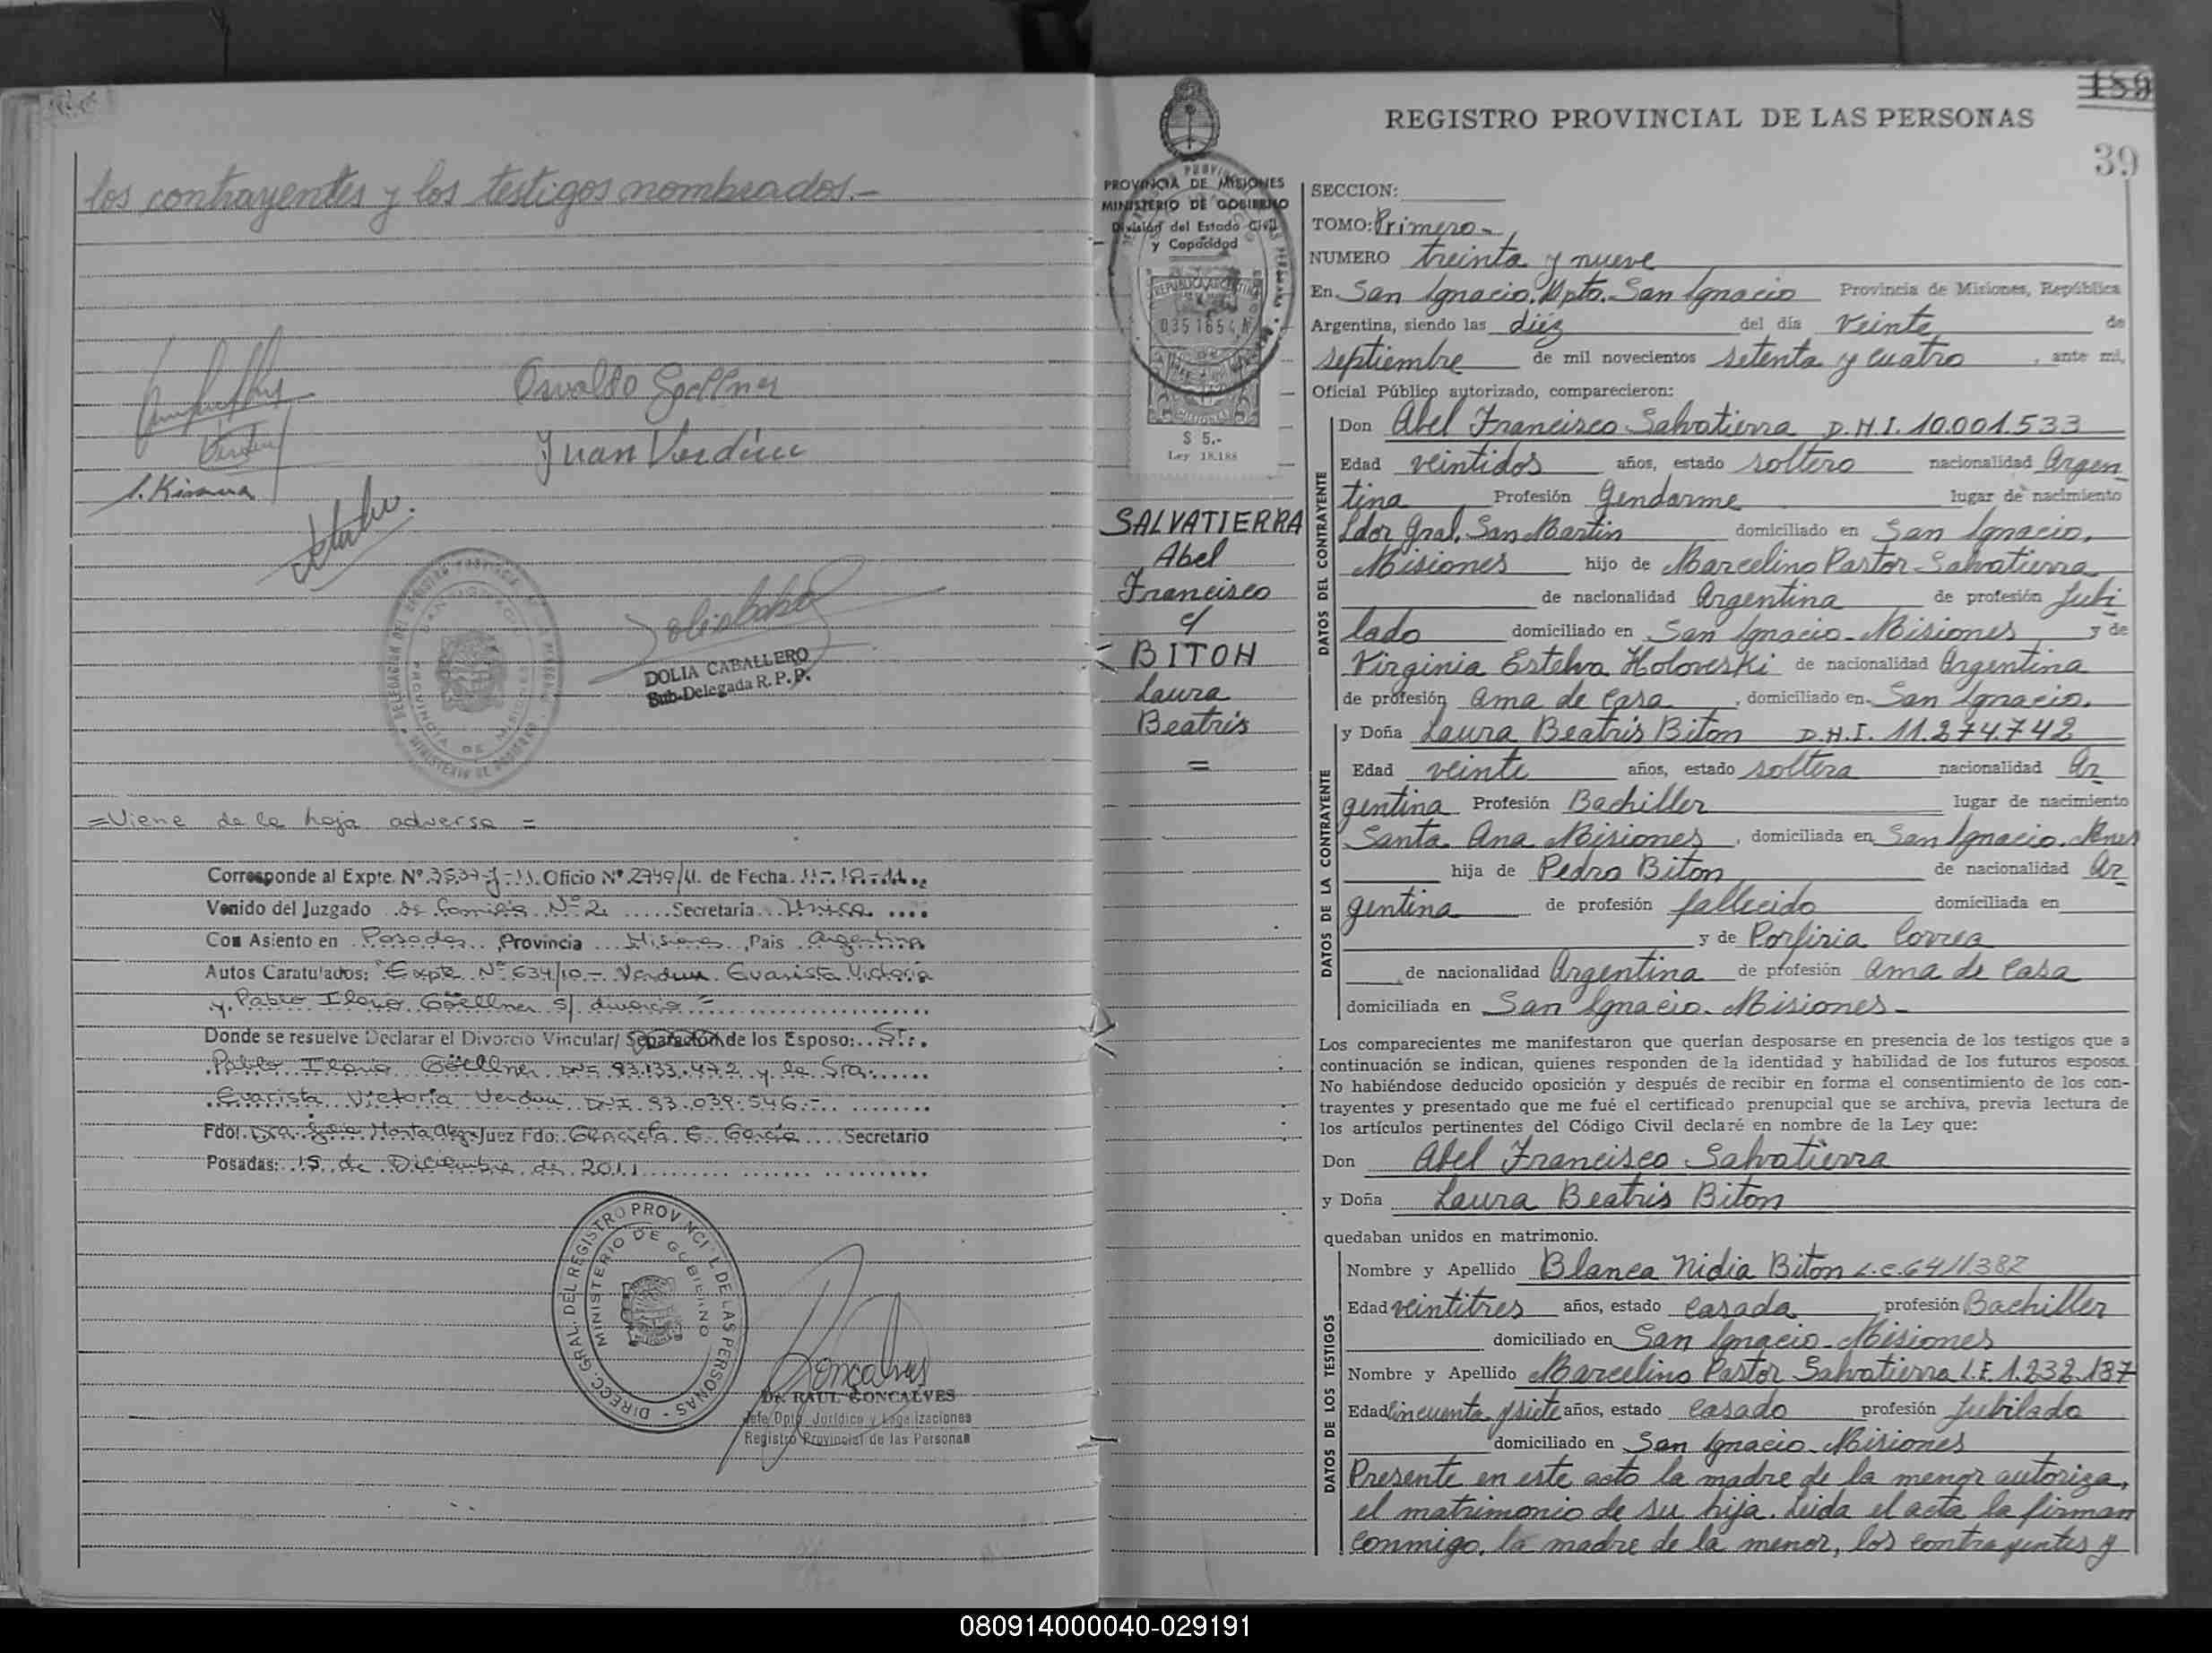 los contrayentes y los testigos nombrados.-
Osvaldo Goellner
Juan Verdún
DOLIA CABALLERO
Sub-Delegada R. P. P.
=Viene de la hoja adversa =
Corresponde al Expte. Nº Oficio Nº 2749/11. de Fecha. 11-10-11.
Venido del Juzgado de Familia Nº 2 Secretaria Unica
Con Asiento en Posadas, Provincia Misiones, Pais Argentina
Autos Caratulados: "Expte Nº 634/10 - Verdun Evarista Victoria
y Pablo Ilario Göellner s/ divorcio"
Donde se resuelve Declarar el Divorcio Vincular/ Separación de los Esposo: Sr.
Pablo Ilario Göellner DNI 93.133.472 y la Sra.
Evarista Victoria Verdun DNI 93.039.546.-
Fdo: Dra. Juez Fdo: Graciela E. García Secretario
Posadas: 15 de Diciembre de 2011
DIRECC. GRAL. DEL REGISTRO PROVINCIAL DE LAS PERSONAS
MINISTERIO DE GOBIERNO
Dr. RAUL GONCALVES
Jefe Dpto. Jurídico y Legalizaciones
Registro Provincial de las Personas
189
REGISTRO PROVINCIAL DE LAS PERSONAS
39
PROVINCIA DE MISIONES
MINISTERIO DE GOBIERNO
División del Estado Civil
y Capacidad
REPUBLICA ARGENTINA
MISIONES
$ 5.-
Ley 18.188
SALVATIERRA
Abel
Francisco
c/
BITON
Laura
Beatris
=
SECCION:
TOMO: Primero-
NUMERO treinta y nueve
En San Ignacio. Dpto. San Ignacio Provincia de Misiones, República
Argentina, siendo las diez del día veinte de
septiembre de mil novecientos setenta y cuatro, ante mi,
Oficial Público autorizado, comparecieron:
DATOS DEL CONTRAYENTE
Don Abel Francisco Salvatierra D.N.I. 10.001.533
Edad veintidos años, estado soltero nacionalidad Argen
tina Profesión Gendarme lugar de nacimiento
Ldor Gral. San Martin domiciliado en San Ignacio,
Misiones hijo de Marcelino Pastor Salvatierra
de nacionalidad Argentina de profesión Jubi
lado domiciliado en San Ignacio-Misiones y de
Virginia Estelva Holoveski de nacionalidad Argentina
de profesión ama de casa, domiciliado en San Ignacio.
DATOS DE LA CONTRAYENTE
y Doña Laura Beatris Biton D.N.I. 11.274.742
Edad veinte años, estado soltera nacionalidad Ar
gentina Profesión Bachiller lugar de nacimiento
Santa Ana Misiones, domiciliada en San Ignacio. Mnes
hija de Pedro Biton de nacionalidad Ar
gentina de profesión fallecido domiciliada en
y de Porfiria Correa
de nacionalidad Argentina de profesión ama de casa
domiciliada en San Ignacio. Misiones-
Los comparecientes me manifestaron que querían desposarse en presencia de los testigos que a
continuación se indican, quienes responden de la identidad y habilidad de los futuros esposos.
No habiéndose deducido oposición y después de recibir en forma el consentimiento de los con-
trayentes y presentado que me fué el certificado prenupcial que se archiva, previa lectura de
los artículos pertinentes del Código Civil declaré en nombre de la Ley que:
Don Abel Francisco Salvatierra
y Doña Laura Beatris Biton
quedaban unidos en matrimonio.
DATOS DE LOS TESTIGOS
Nombre y Apellido Blanca Nidia Biton L.C. 6411382
Edad veintitres años, estado casada profesión Bachiller
domiciliado en San Ignacio-Misiones
Nombre y Apellido Marcelino Pastor Salvatierra L.E. 1.232.187
Edad cincuenta y siete años, estado casado profesión Jubilado
domiciliado en San Ignacio-Misiones
Presente en este acto la madre de la menor autoriza,
el matrimonio de su hija. Leida el acta la firman
conmigo, la madre de la menor, los contrayentes y
080914000040-029191